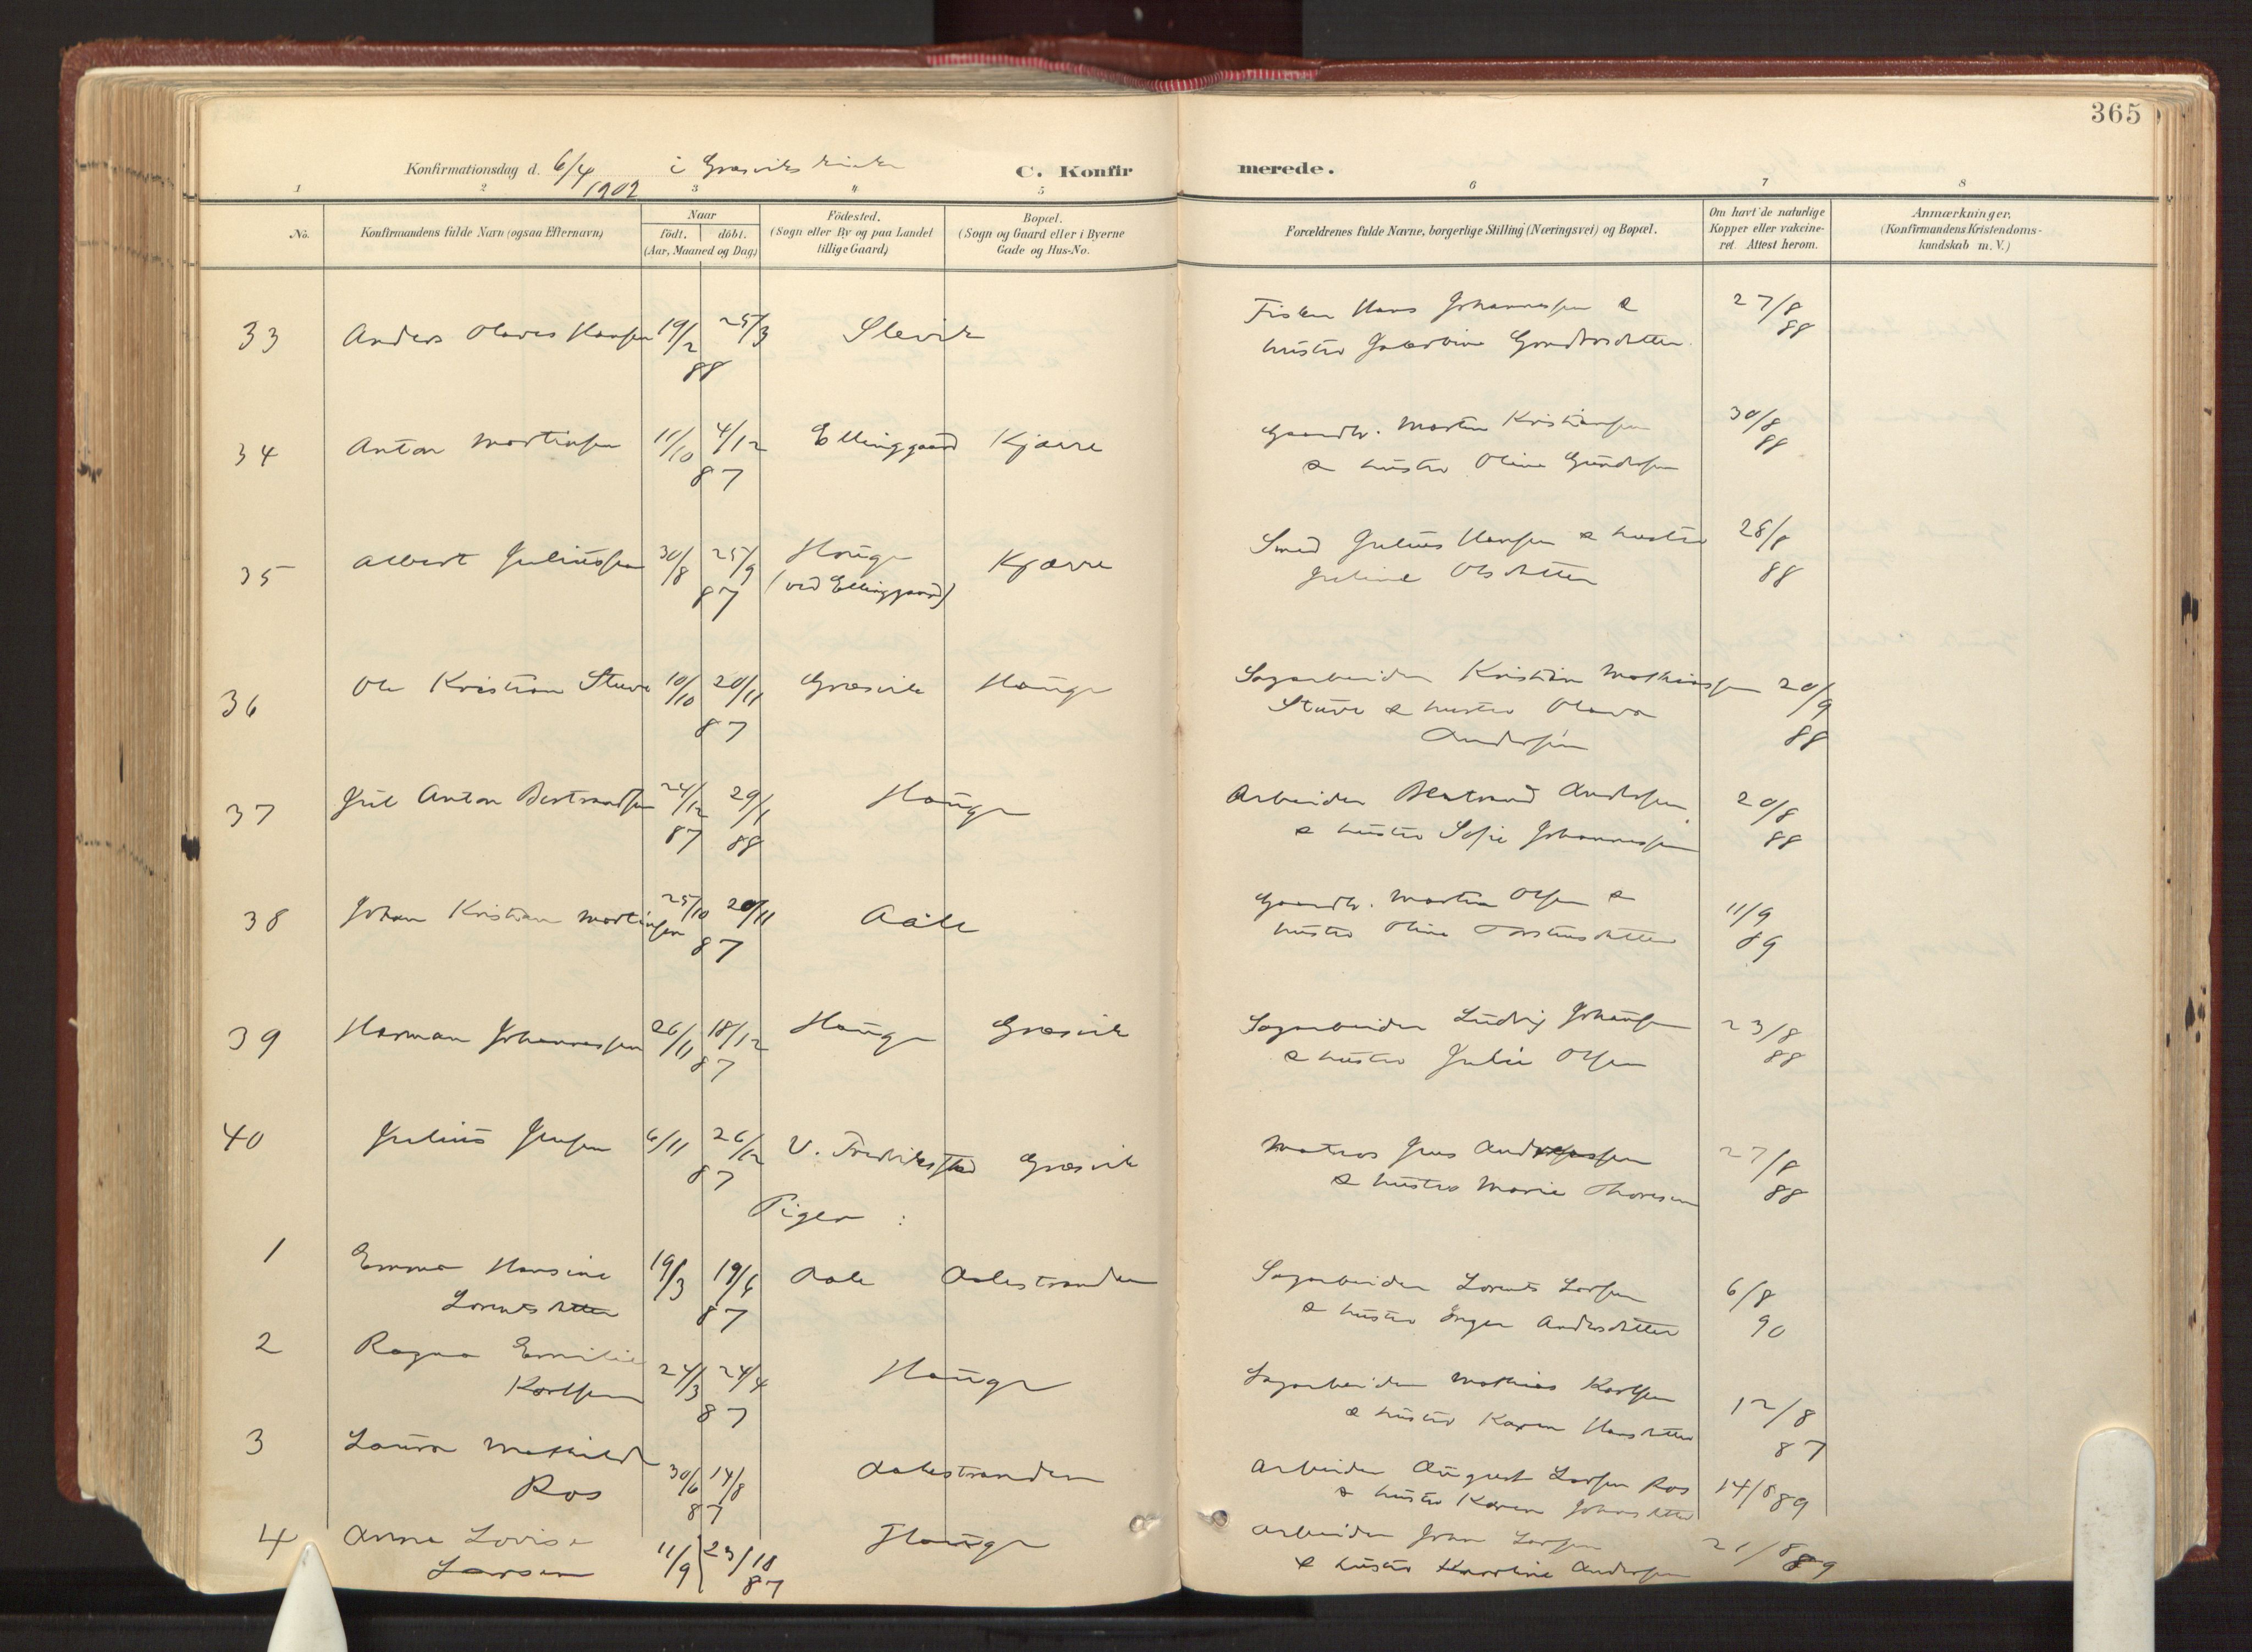 365
Konfirmationsdag d. 6/4 1902 i Græsviks kirke C. Konfirmerede.
1 2 3 4 5 6 7 8
No.
Konfirmandens fulde Navn (ogsaa Efternavn)
Naar
födt. döbt.
(Aar, Maaned og Dag)
Födested.
(Sogn eller By og paa Landet
tillige Gaard)
Bopæl.
(Sogn og Gaard eller i Byerne
Gade og Hus-No.
Forældrenes fulde Navne, borgerlige Stilling (Næringsvei) og Bopæl.
Om havt de naturlige
Kopper eller vakcine-
ret. Attest herom.
Anmærkninger.
(Konfirmandens Kristendoms-
kundskab m. V.)
33 Anders Olaves Hansen 19/2 25/3 88 Slevik
Fisker Hans Johannessen &
hustru Gundersdatter
27/8 88
34 Anton Martinsen 11/10 4/12 87 Ellinggaard Kjærre
Gaardbr. Martin Kristiansen
& hustru Oline Gundersen
30/8 88
35 Albert Juliussen 30/8 25/9 87 Hauge
(ved Ellinggaard) Kjærre
Smed Julius Hansen & hustru
Juline Olsdatter
28/8 88
36 Ole Kristian Stuve 10/10 20/11 87 Græsvik Hauge
Sagarbeider Kristian Mathiassen
Stuve & hustru Olava
Andersen
20/9 88
37 Jul Anton Bertrandsen 24/12 87 29/1 88 Hauge
Arbeider Bertrand Andersen
& hustru Sofie Johannessen
20/8 88
38 Johan Kristian Martinsen 25/10 20/11 87 Aale
Gaardbr. Martin Olsen &
hustru Oline Torstensdatter
11/9 89
39 Herman Johannessen 26/11 18/12 87 Hauge Græsvik
Sagarbeider Ludvig Johansen
& hustru Julie Olsen
23/8 88
40 Julius Jensen 6/11 26/12 87 V. Fredrikstad Græsvik
Matros Jens Andreassen
& hustru Marie Thoresen
27/8 88
Piger :
1 Emma Hansine
Lorentsdatter 19/3 19/6 87 Aale Aalestranden
Sagarbeider Lorents Larsen
& hustru Inger Andersdatter
6/8 90
2 Ragna Emilie
Karlsen 24/3 24/4 87 Hauge
Sagarbeider Mathias Karlsen
& hustru Karen Hansdatter
12/8 87
3 Laura Mathilde
Ros 30/6 14/8 87 Aalestranden
Arbeider August Larsen Ros
& hustru Karen Johnsdatter
14/8 89
4 Anna Lovise
Larsen 11/9 23/10 87 Hauge
Arbeider Johan Larsen
& hustru Karoline Andersen
21/8 89